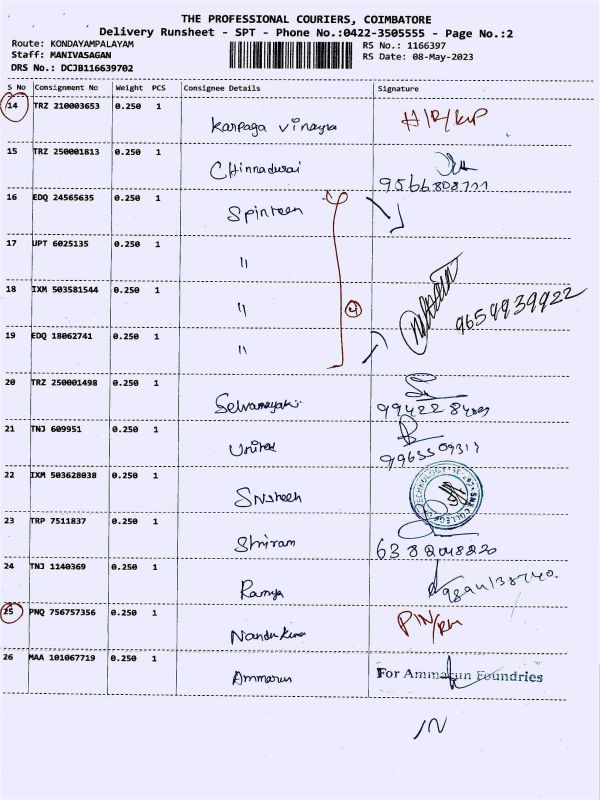 THE PROFESSIONAL COURIERS, COIMBATORE
Delivery Runsheet - SPT - Phone No.:0422-3505555 - Page No.:2
Route: KONDAYAMPALAYAM
Staff: MANIVASAGAN
DRS No.: DCJB116639702
RS No.: 1166397
RS Date: 08-May-2023
S No Consignment No Weight PCS Consignee Details Signature
14 TRZ 210003653 0.250 1 Karpaga Vinayra
15 TRZ 250001813 0.250 1 Chinnadurai
9566808711
16 EDQ 24565635 0.250 1 Spinteen
17 UPT 6025135 0.250 1 "
18 IXM 503581544 0.250 1 " 4 9659939922
19 EDQ 18062741 0.250 1 "
20 TRZ 250001498 0.250 1 Selvanayaki
21 TNJ 609951 0.250 1 United
22 IXM 503628038 0.250 1 SNSteen
23 TRP 7511837 0.250 1 Shriram 6382048220
24 TNJ 1140369 0.250 1 Ramya
25 PNQ 756757356 0.250 1 Nandu Kumar
26 MAA 101067719 0.250 1 Ammarun For Ammarun Foundries
IN